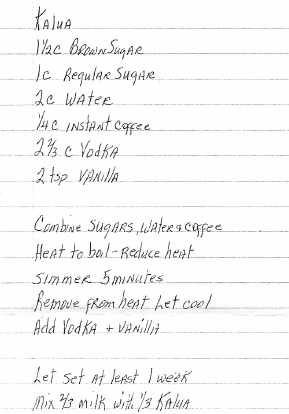 Kalua
1 1/2 c Brown Sugar
1 c Regular Sugar
2 c Water
1/4 c instant coffee
2 2/3 c Vodka
2 tsp Vanilla
Combine Sugars, Water & coffee
Heat to boil - Reduce heat
Simmer 5 minutes
Remove from heat Let cool
Add Vodka + Vanilla
Let set at least 1 week
Mix 2/3 milk with 1/3 Kalua